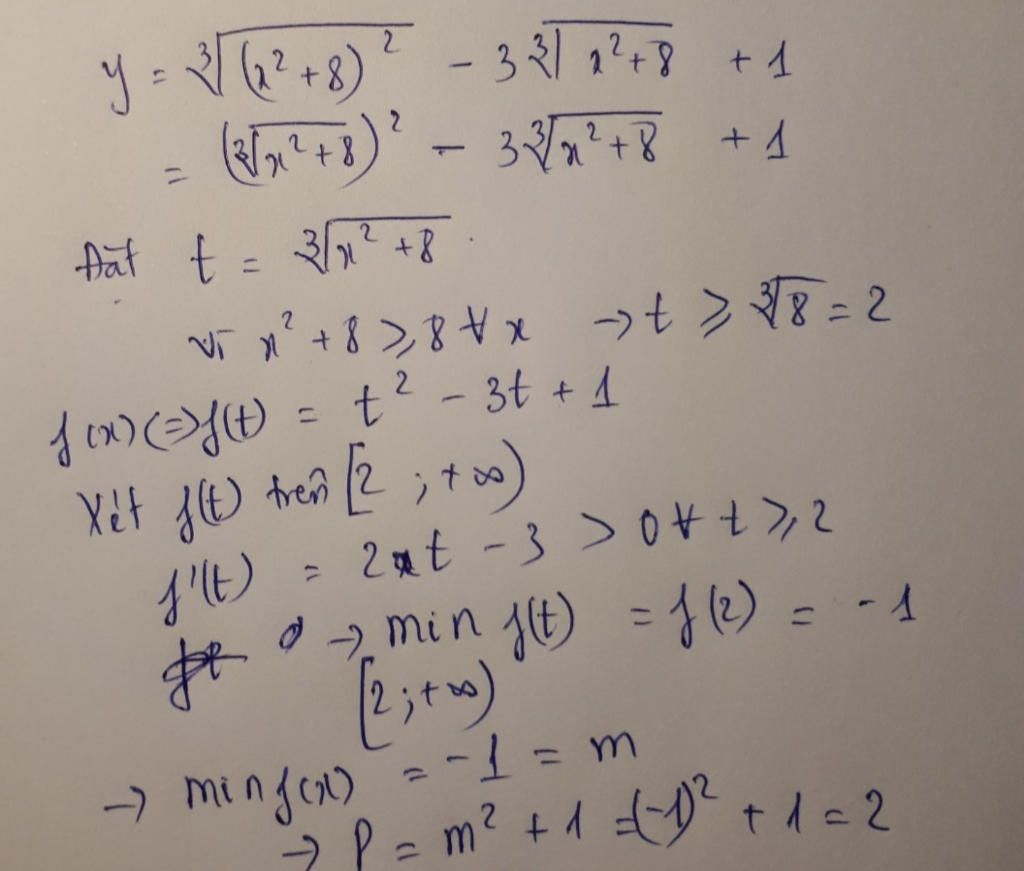 y = ∛(x² + 8)² - 3∛x² + 8 + 1
= (∛x² + 8)² - 3∛x² + 8 + 1
Đặt t = ∛x² + 8.
vì x² + 8 ≥ 8 ∀ x → t ≥ ∛8 = 2
f(x) (=) f(t) = t² - 3t + 1
Xét f(t) trên [2 ; +∞)
f'(t) = 2t - 3 > 0 ∀ t ≥ 2
→ min f(t) = f(2) = -1
[2 ; +∞)
→ min f(x) = -1 = m
→ P = m² + 1 = (-1)² + 1 = 2